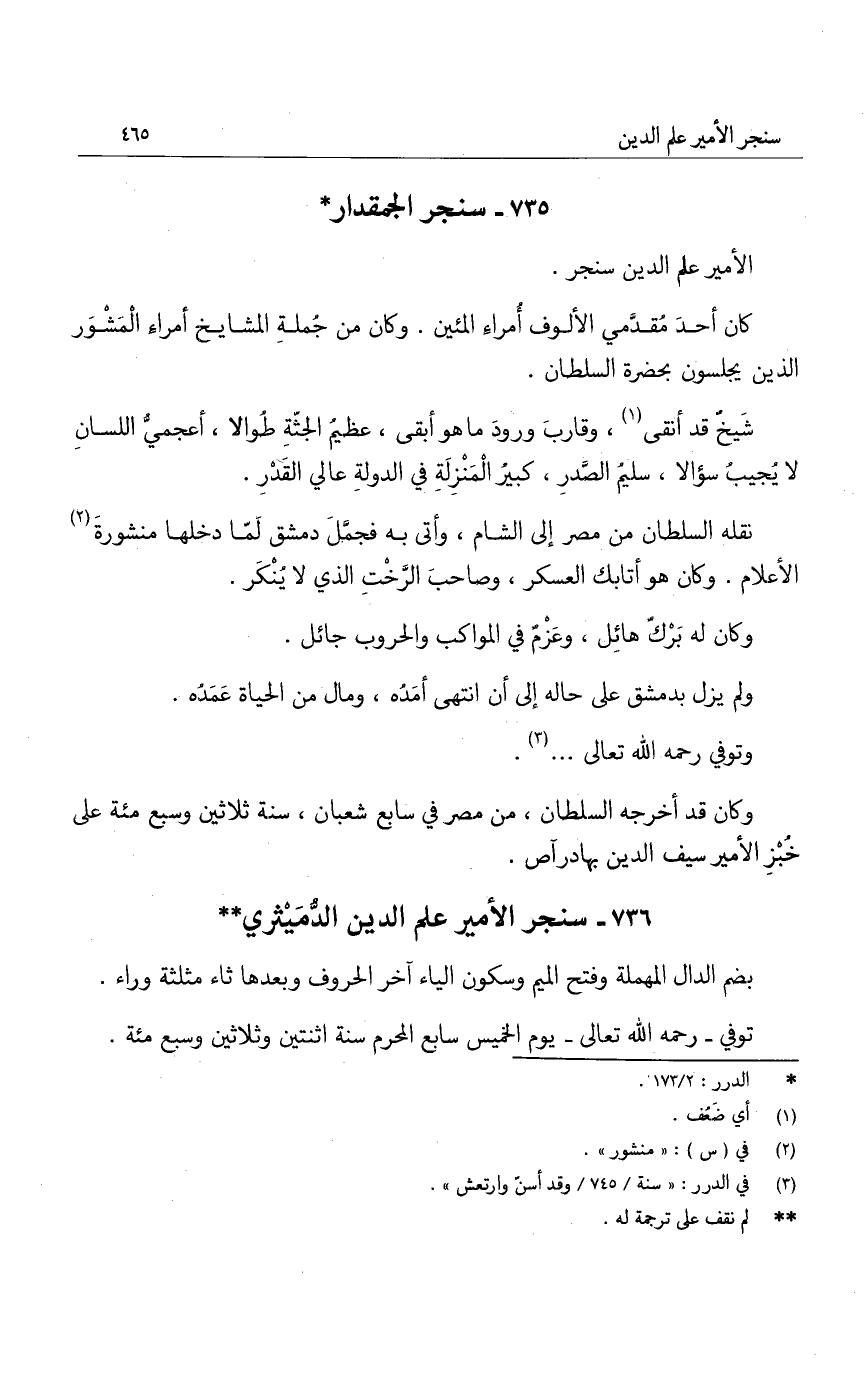 سنجر الأمير علم الدين ٤٦٥
٧٣٥ ـ سنجر الجمقدار*
الأمير علم الدين سنجر .
كان أحدَ مُقدَّمي الألوف أُمراءِ المئين . وكان من جُملةِ المشايخ أمراء الْمَشْوَر
الذين يجلسون بحضرة السلطان .
شَيخٌ قد أنقى(١) ، وقاربَ ورودَ ما هو أبقى ، عظيمُ الجثّةِ طُوالا ، أعجميُّ اللسانِ
لا يُجيبُ سؤالا ، سليمُ الصَّدرِ ، كبيرُ الْمَنْزِلَةِ في الدولةِ عالي القَدْرِ .
نقله السلطان من مصر إلى الشام ، وأتى به فجمَّلَ دمشق لَمّا دخلها منشورةَ(٢)
الأعلام . وكان هو أتابك العسكر ، وصاحبَ الرَّخْتِ الذي لا يُنْكَر .
وكان له بَرْكٌ هائِل ، وعَزْمٌ في المواكب والحروب جائل .
ولم يزل بدمشق على حاله إلى أن انتهى أمَدُه ، ومال من الحياة عَمَدُه .
وتوفي رحمه الله تعالى ...(٣) .
وكان قد أخرجه السلطان ، من مصر في سابع شعبان ، سنة ثلاثين وسبع مئة على
خُبْزِ الأمير سيف الدين بهادرآص .
٧٣٦ ـ سنجر الأمير علم الدين الدُّمَيْثري**
بضم الدال المهملة وفتح الميم وسكون الياء آخر الحروف وبعدها ثاء مثلثة وراء .
توفي ـ رحمه الله تعالى ـ يوم الخميس سابع المحرم سنة اثنتين وثلاثين وسبع مئة .
* الدرر : ١٧٣/٢ .
(١) أي ضَعُف .
(٢) في ( س ) : « منشور » .
(٣) في الدرر : « سنة / ٧٤٥ / وقد أسنّ وارتعش » .
** لم نقف على ترجمة له .